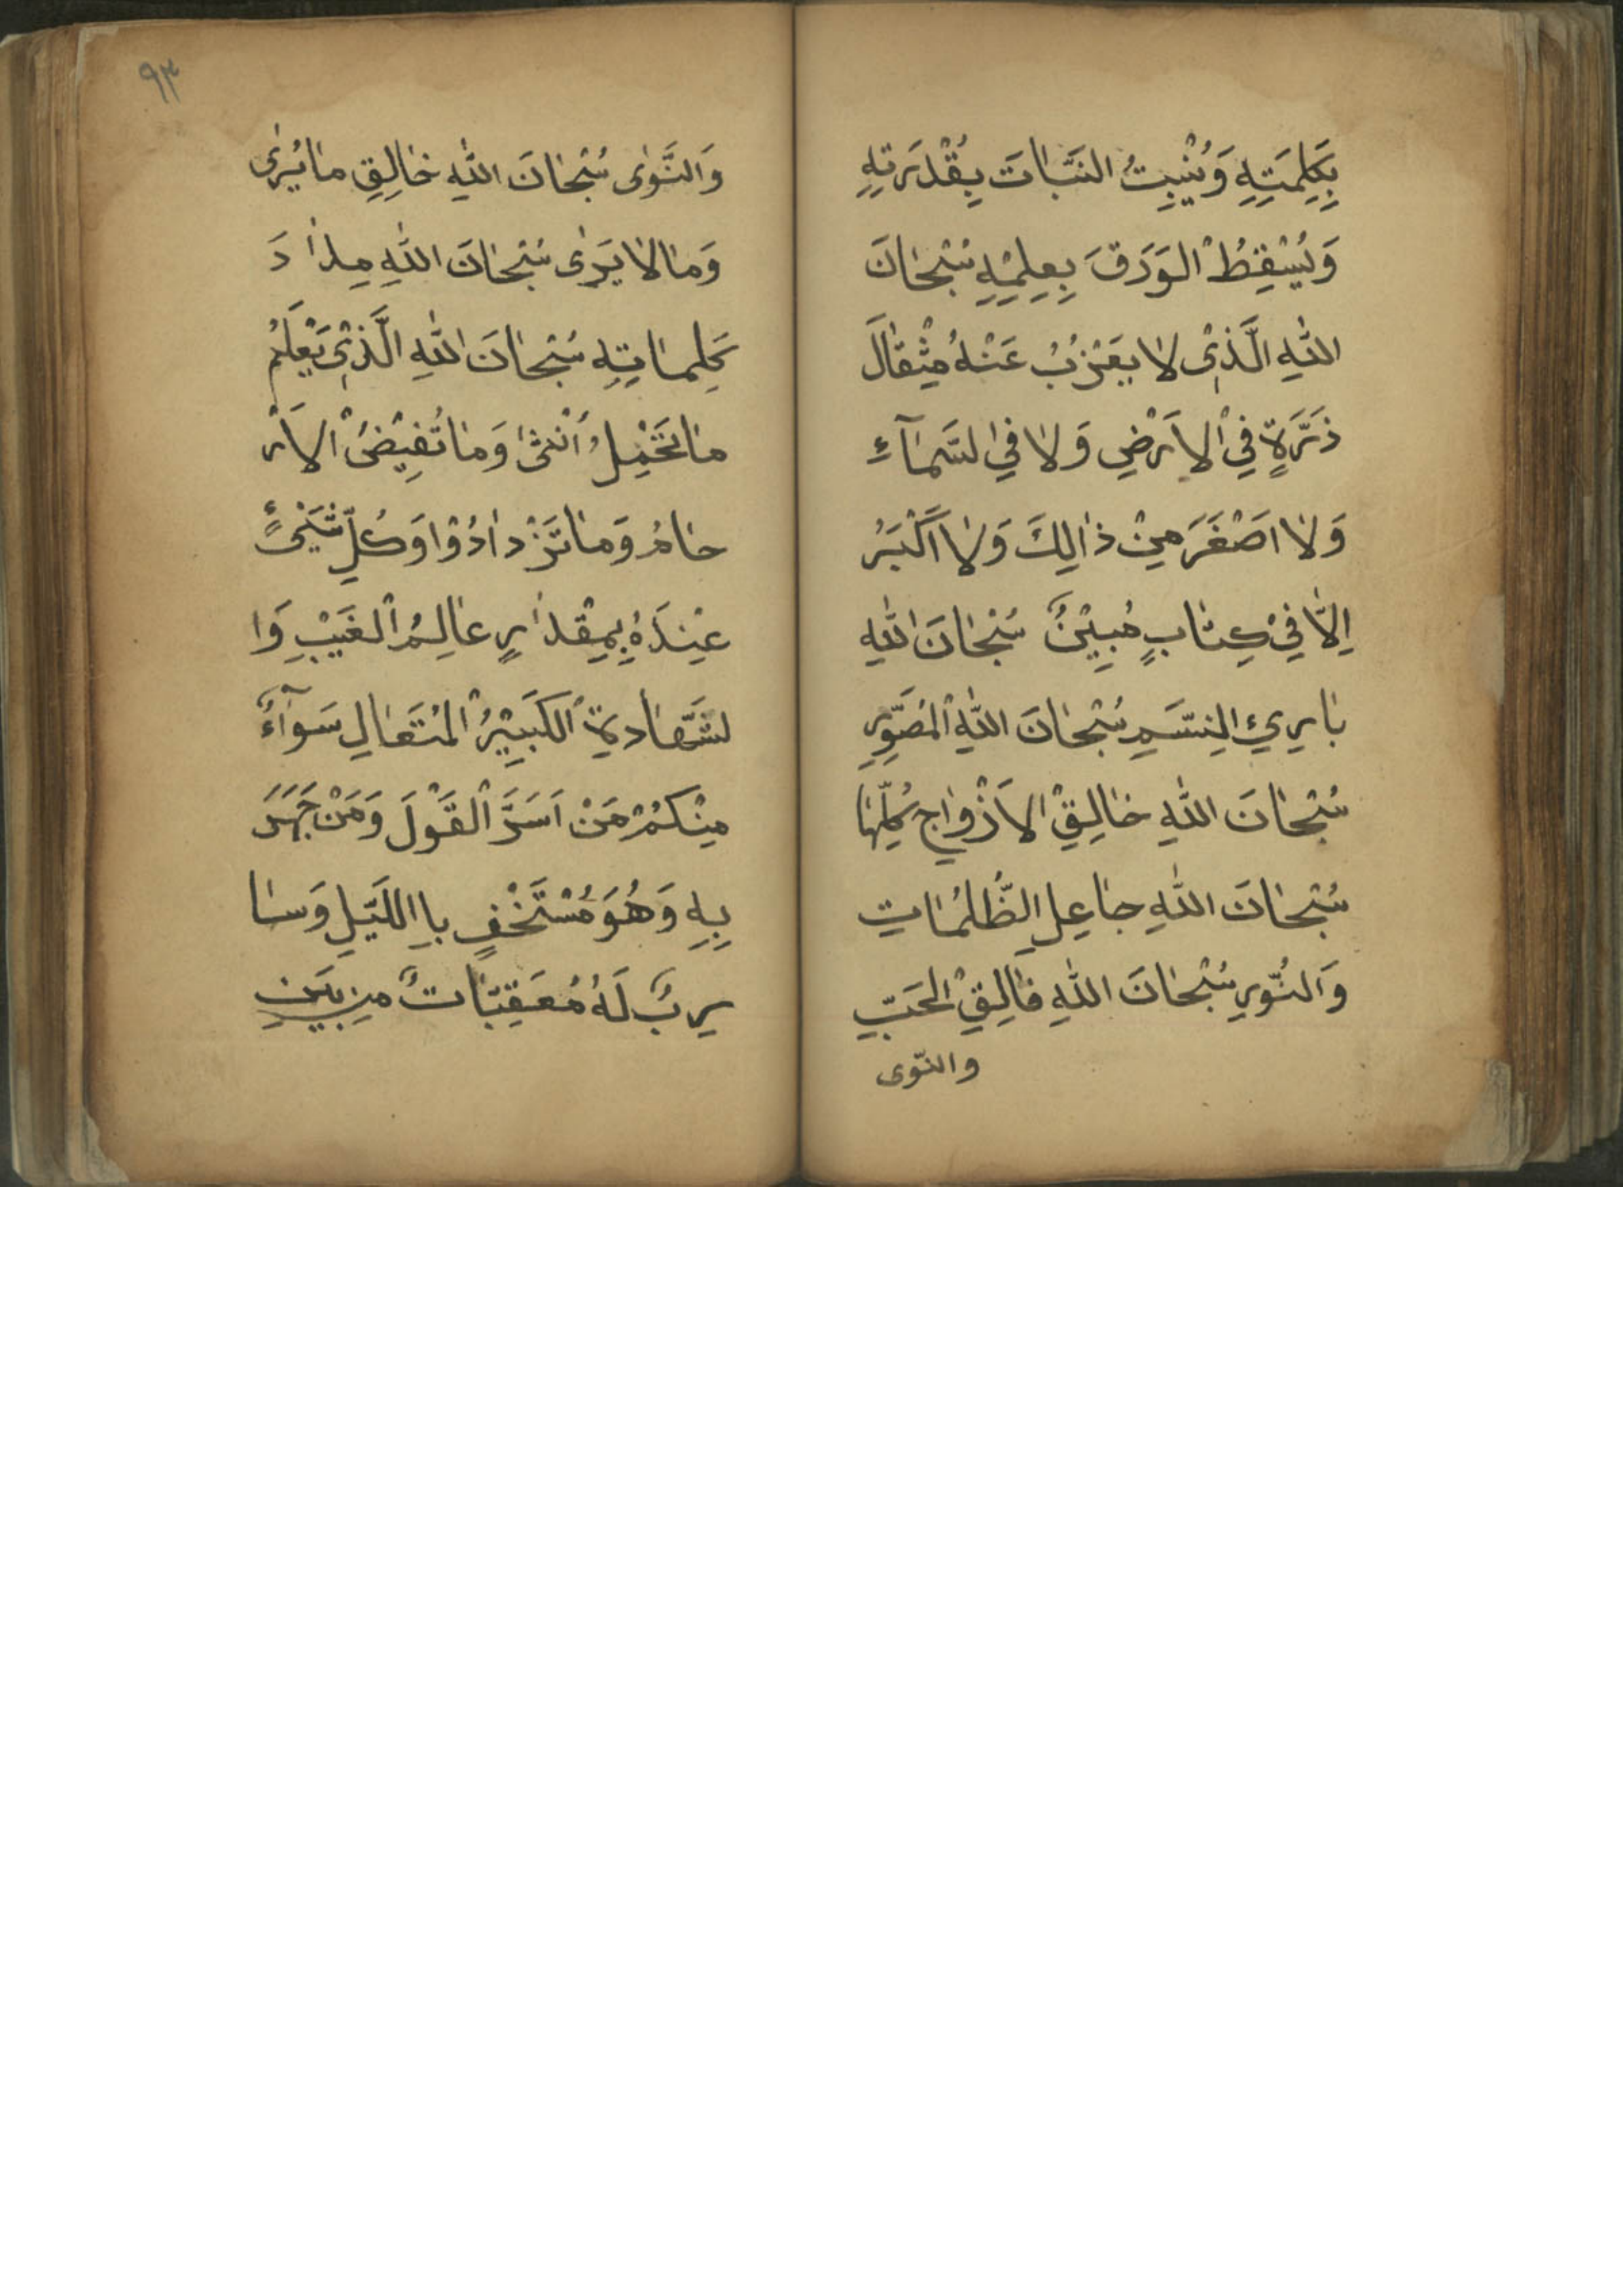 بِكَلِمَتِهِ وَيُنْبِتُ النَّبَاتَ بِقُدْرَتِهِ
وَيُسْقِطُ الْوَرَقَ بِعِلْمِهِ سُبْحَانَ
اللّٰهِ الَّذِيْ لَا يَعْزُبُ عَنْهُ مِثْقَالَ
ذَرَّةٍ فِيْ الْاَرْضِ وَلَا فِي السَّمَآءِ
وَلَا اَصْغَرَ مِنْ ذَالِكَ وَلَا اَكْبَرُ
اِلَّا فِيْ كِتَابٍ مُبِيْنٌ سُبْحَانَ اللّٰهِ
بَارِئِ النَّسَمِ سُبْحَانَ اللّٰهِ الْمُصَوِّرِ
سُبْحَانَ اللّٰهِ خَالِقِ الْاَزْوَاجِ كُلِّهَا
سُبْحَانَ اللّٰهِ جَاعِلِ الظُّلُمَاتِ
وَالنُّورِ سُبْحَانَ اللّٰهِ فَالِقِ الْحَبِّ
والنّوى
٩٣
وَالنَّوٰى سُبْحَانَ اللّٰهِ خَالِقِ مَا يُرٰى
وَمَا لَا يَرٰى سُبْحَانَ اللّٰهِ مِدَادَ
كَلِمَاتِهِ سُبْحَانَ اللّٰهِ الَّذِيْ يَعْلَمُ
مَا تَحْمِلُ اُنْثَىٰ وَمَا تُفِيْضُ الْاَرْ
حَامُ وَمَا تَزْدَادُوْا وَكُلِّ شَيْئٍ
عِنْدَهُ بِمِقْدَارٍ عَالِمُ الْغَيْبِ وَا
لشَّهَادَةِ الْكَبِيْرُ الْمُتَعَالِ سَوَآءٌ
مِنْكُمْ مَنْ اَسَرَّ الْقَوْلَ وَمَنْ جَهَرَ
بِهِ وَهُوَ مُسْتَخْفٍ بِااللَّيْلِ وَسَا
رِبٌ لَهُ مُعَقِّبَاتٌ مِن بَيْنِ